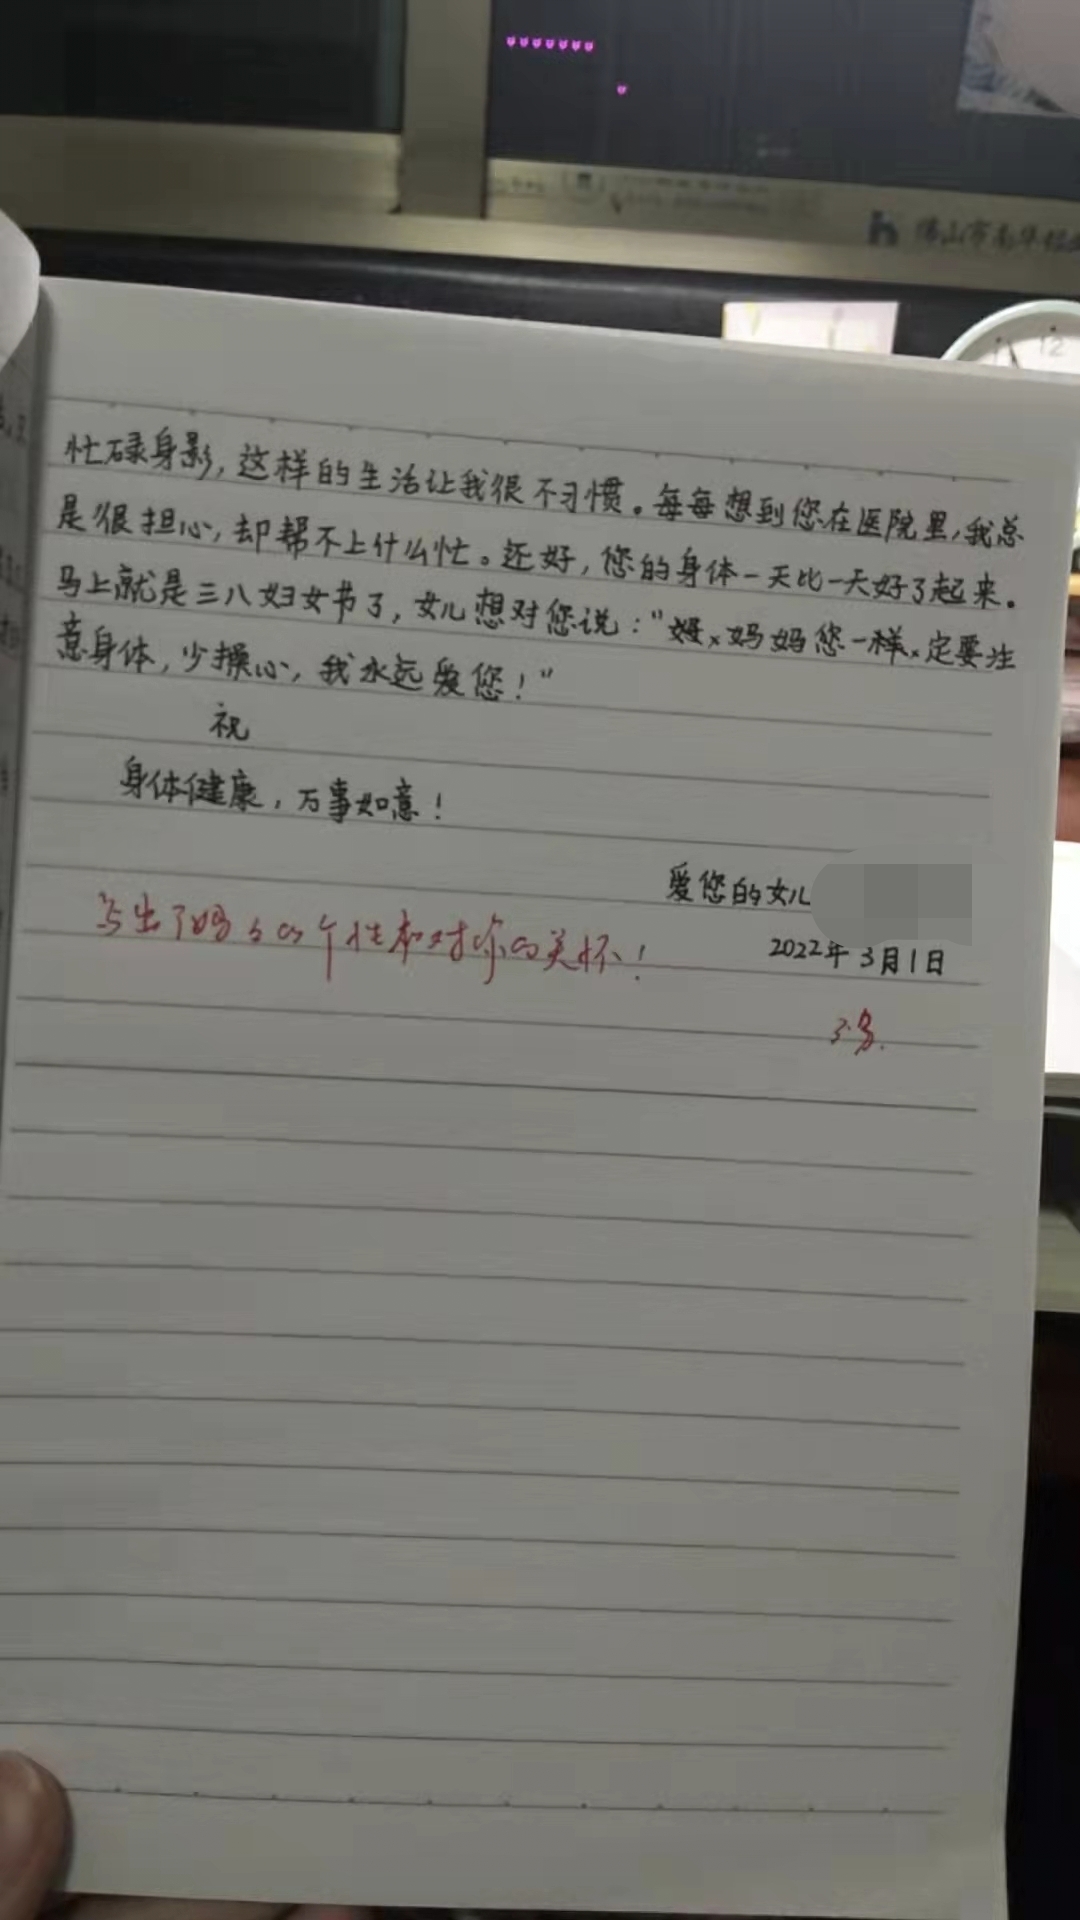 佛山市南华
12
忙碌身影，这样的生活让我很不习惯。每每想到您在医院里，我总
是很担心，却帮不上什么忙。还好，您的身体一天比一天好了起来。
马上就是三八妇女节了，女儿想对您说：“妈妈您一定要注
意身体，少操心，我永远爱您！”
祝
身体健康，万事如意！
爱您的女儿
写出了妈妈的个性和对你的关怀！
2022年3月1日